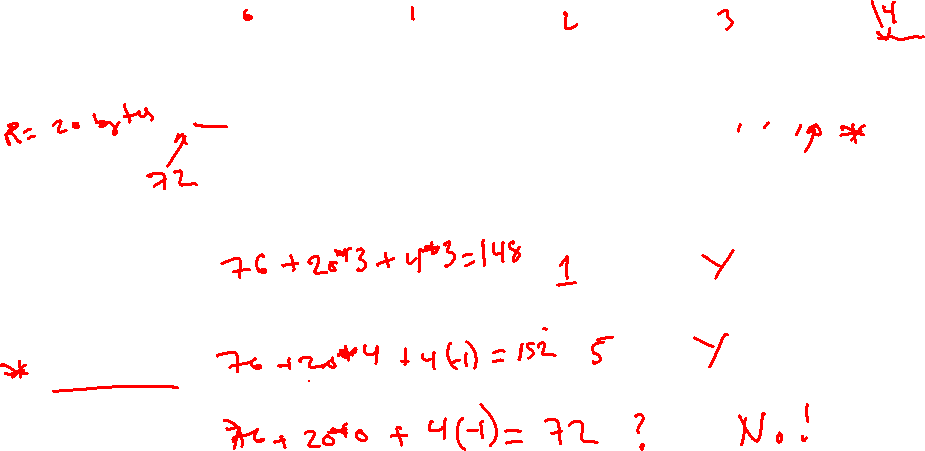 0 1 2 3 14
R = 20 bytes
72
76 + 20*3 + 4*3 = 148 1 Y
* 76 + 20*4 + 4(-1) = 152 5 Y
76 + 20*0 + 4(-1) = 72 ? No!